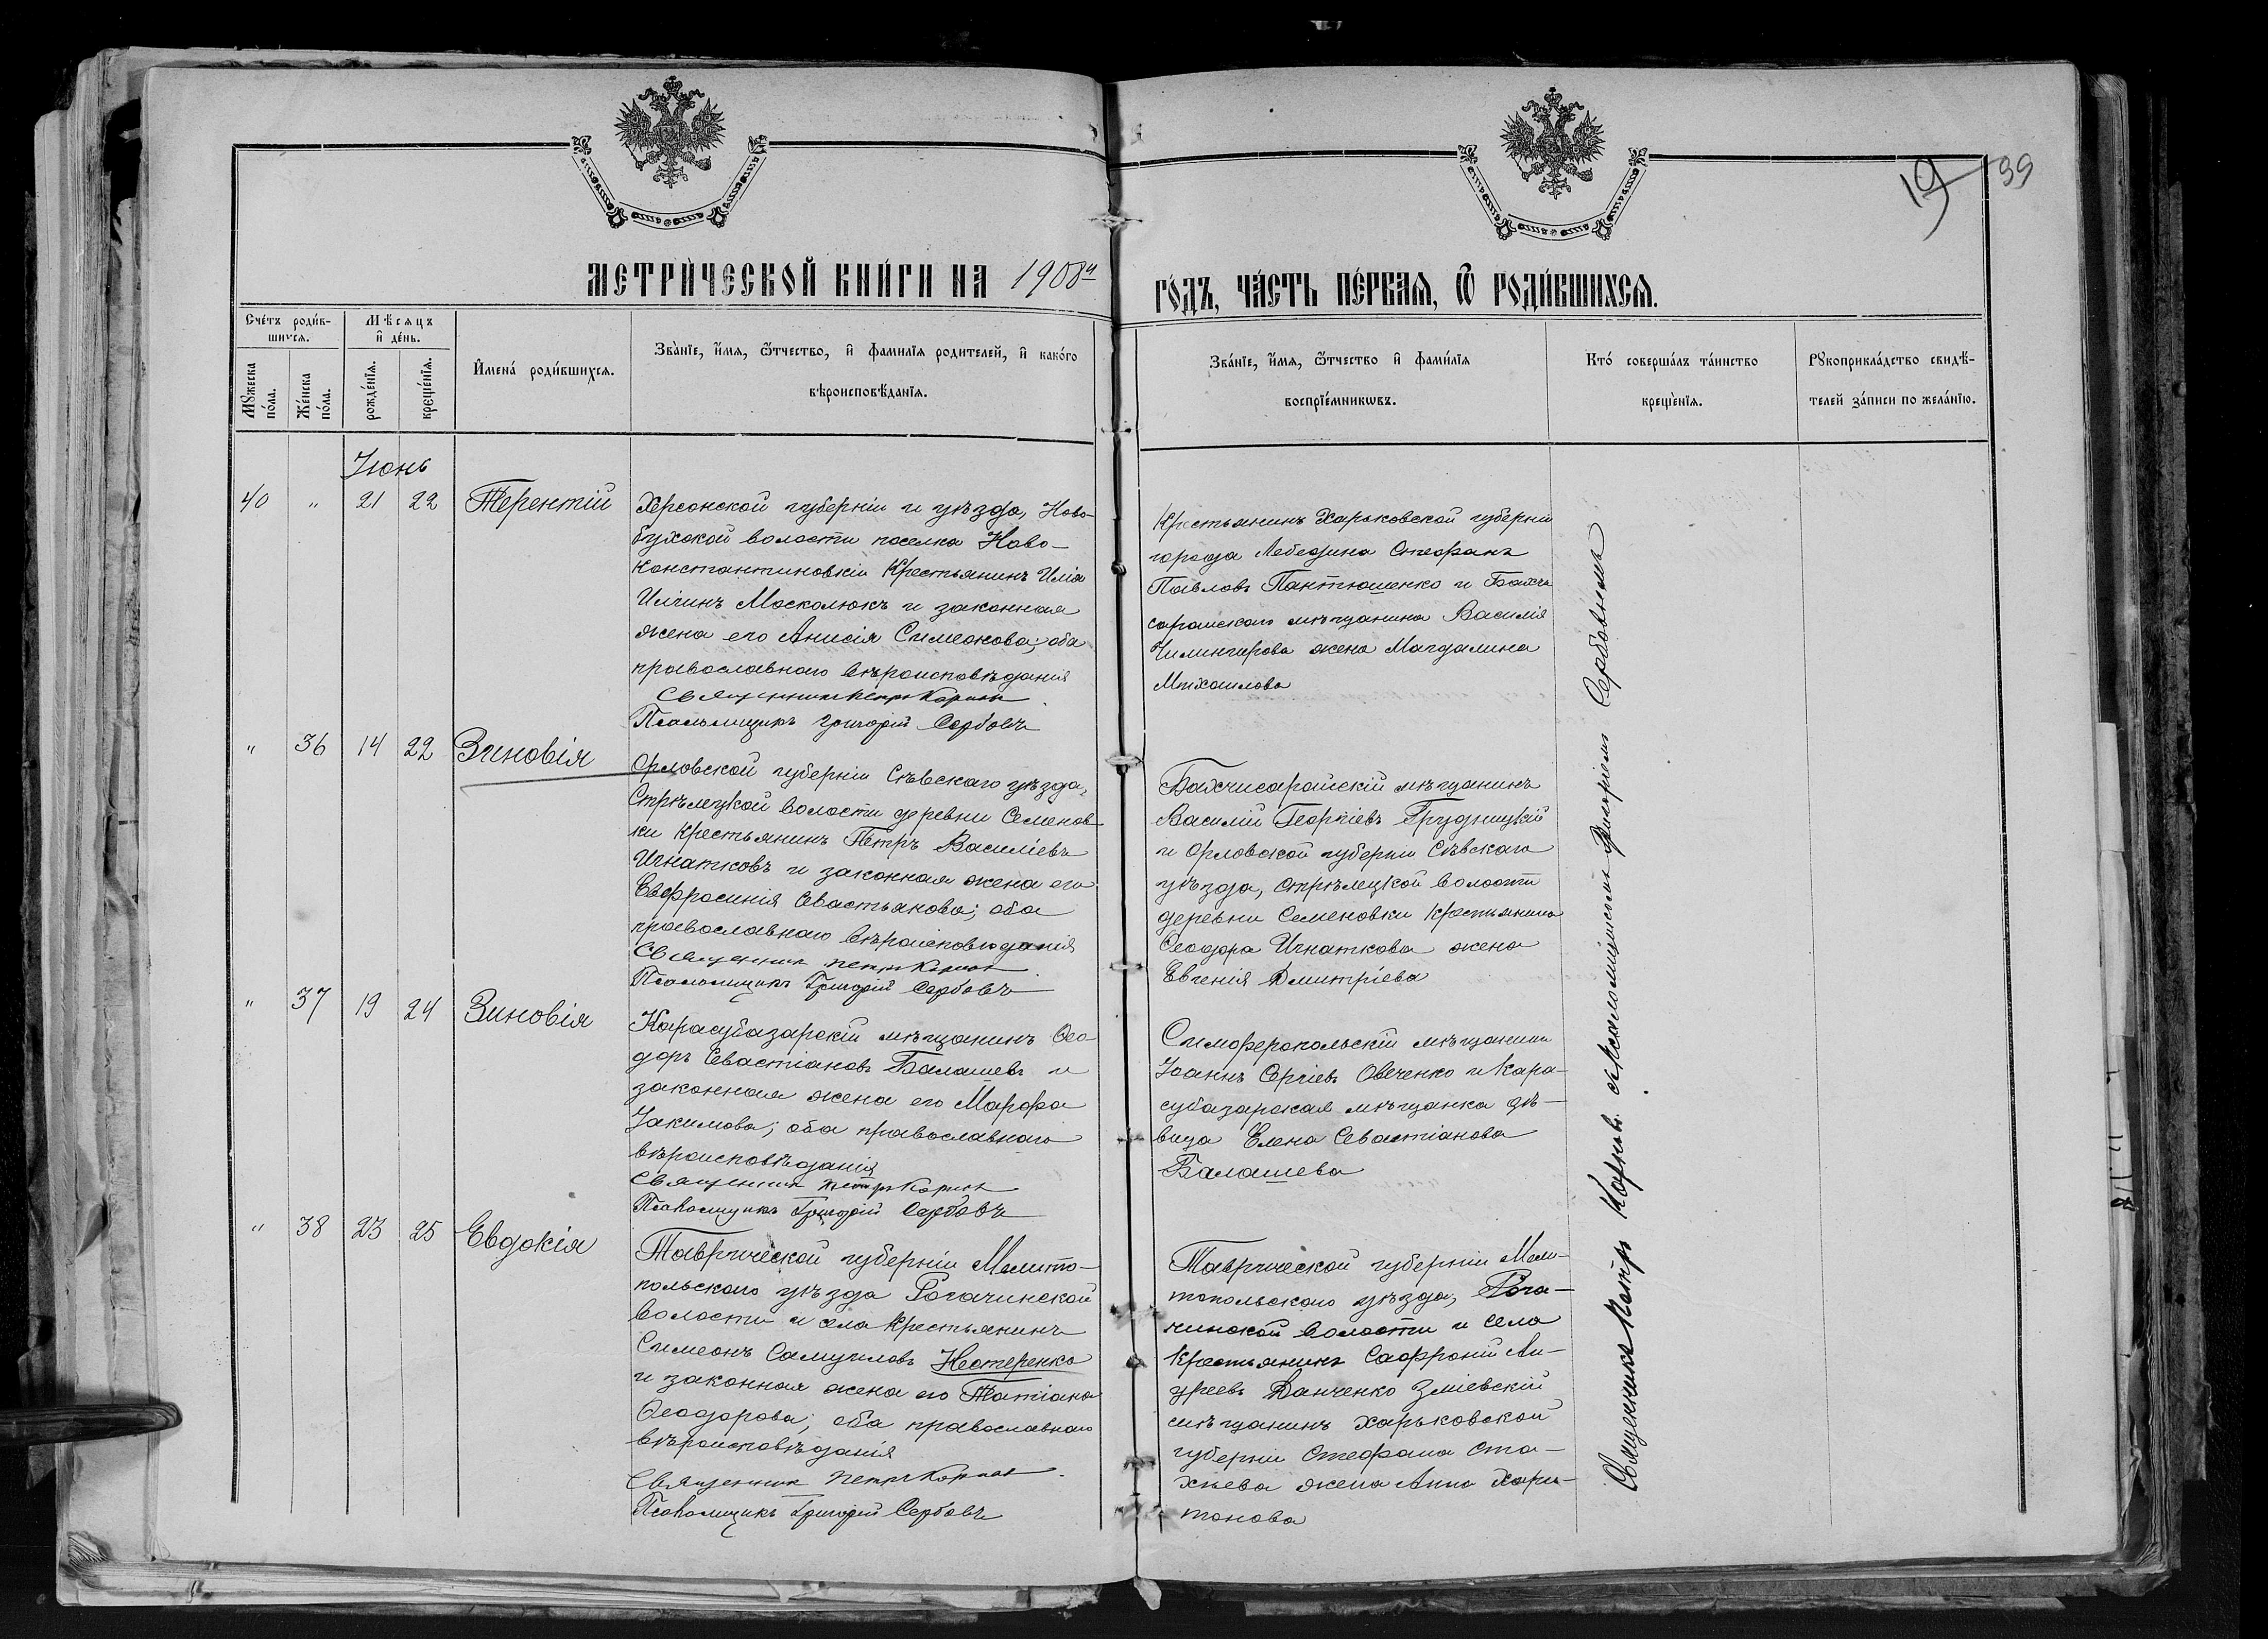 19
39
МЕТРИ́ЧЕСКОЙ КНИ́ГИ НА 1908й
ГО́ДЪ, ЧА́СТЬ ПЕ́РВАѦ, Ѿ РОДИ́ВШИХСѦ.
Сче́тъ роди́в-
шихсѧ.
Мꙋжеска
по́ла.
Же́нска
по́ла.
Мѣ́сѧцъ
и҆ де́нь.
рожде́нїѧ.
креще́нїѧ.
И҆мена́ роди́вшихсѧ.
Зва́нїе, и҆́мѧ, ѻ҆́тчество, и҆ фамилїѧ родителей, и҆ како́го
вѣроисповѣ́данїѧ.
Зва́нїе, и҆́мѧ, ѻ҆́тчество и҆ фами́лїѧ
воспрїе́мникѡвъ.
Кто́ соверша́лъ та́инство
креще́нїѧ.
Рꙋкоприкла́дство свидѣ́-
телей за́писи по жела́нїю.
Іюнь
40 " 21 22 Терентій
Херсонской губерніи и уѣзда, Ново-
бугской волости поселка Ново-
Константиновскіи Крестьянинъ Илія
Иліинъ Москолюкъ и законная
жена его Анисія Симеонова; оба
православнаго вѣроисповѣданія
Священникъ Петръ Корнов
Псаломщикъ Григорій Сербовъ
Крестьянинъ Харьковской губерніи
города Лебедина Стефанъ
Павловъ Пантюшенко и Бахчи
сарайскаго мѣщанина Василія
Чилингирова жена Магдалина
Михайлова
" 36 14 22 Зиновія
Орловской губерніи Сѣвскаго уѣзда,
Стрѣлецкой волости деревни Семенов-
ки крестьянинъ Петръ Василіевъ
Игнатковъ и законная жена его
Евфросинія Севастьянова; оба
православнаго вѣроисповѣданія
Священникъ Петръ Корнов
Псаломщикъ Григорій Сербовъ
Бахчисарайскій мѣщанинъ
Василій Георгіевъ Грудницкій
и Орловской губерніи Сѣвскаго
уѣзда, Стрѣлецкой волости
деревни Семеновки крестьянина
Ѳеодора Игнаткова жена
Евгенія Димитріева
" 37 19 24 Зиновія
Карасубазарскій мѣщанинъ Ѳео-
доръ Севастіановъ Балашевъ и
законная жена его Марфа
Іакимова; оба православнаго
вѣроисповѣданія
Священникъ Петръ Корнов
Псаломщикъ Григорій Сербовъ
Симферопольскій мѣщанинъ
Іоаннъ Сергіевъ Овеченко и Кара-
субазарская мѣщанка дѣ-
вица Елена Севастіанова
Балашева
" 38 23 25 Евдокія
Таврической губерніи Мелито-
польскаго уѣзда Рогачинской
волости и села крестьянинъ
Симеонъ Самуиловъ Нестеренко
и законная жена его Татіана
Ѳеодорова; оба православнаго
вѣроисповѣданія
Священникъ Петръ Корнов
Псаломщикъ Григорій Сербовъ
Таврической губерніи Мели-
топольскаго уѣзда, Рога-
чинской волости и села
крестьянинъ Сафроній Ан-
дреевъ Данченко Зміевскій
мѣщанинъ Харьковской
губерніи Стефана Ста-
хіева жена Анна Хари-
тонова
Священникъ Петръ Корнов съ псаломщикомъ Григоріемъ Сербовымъ